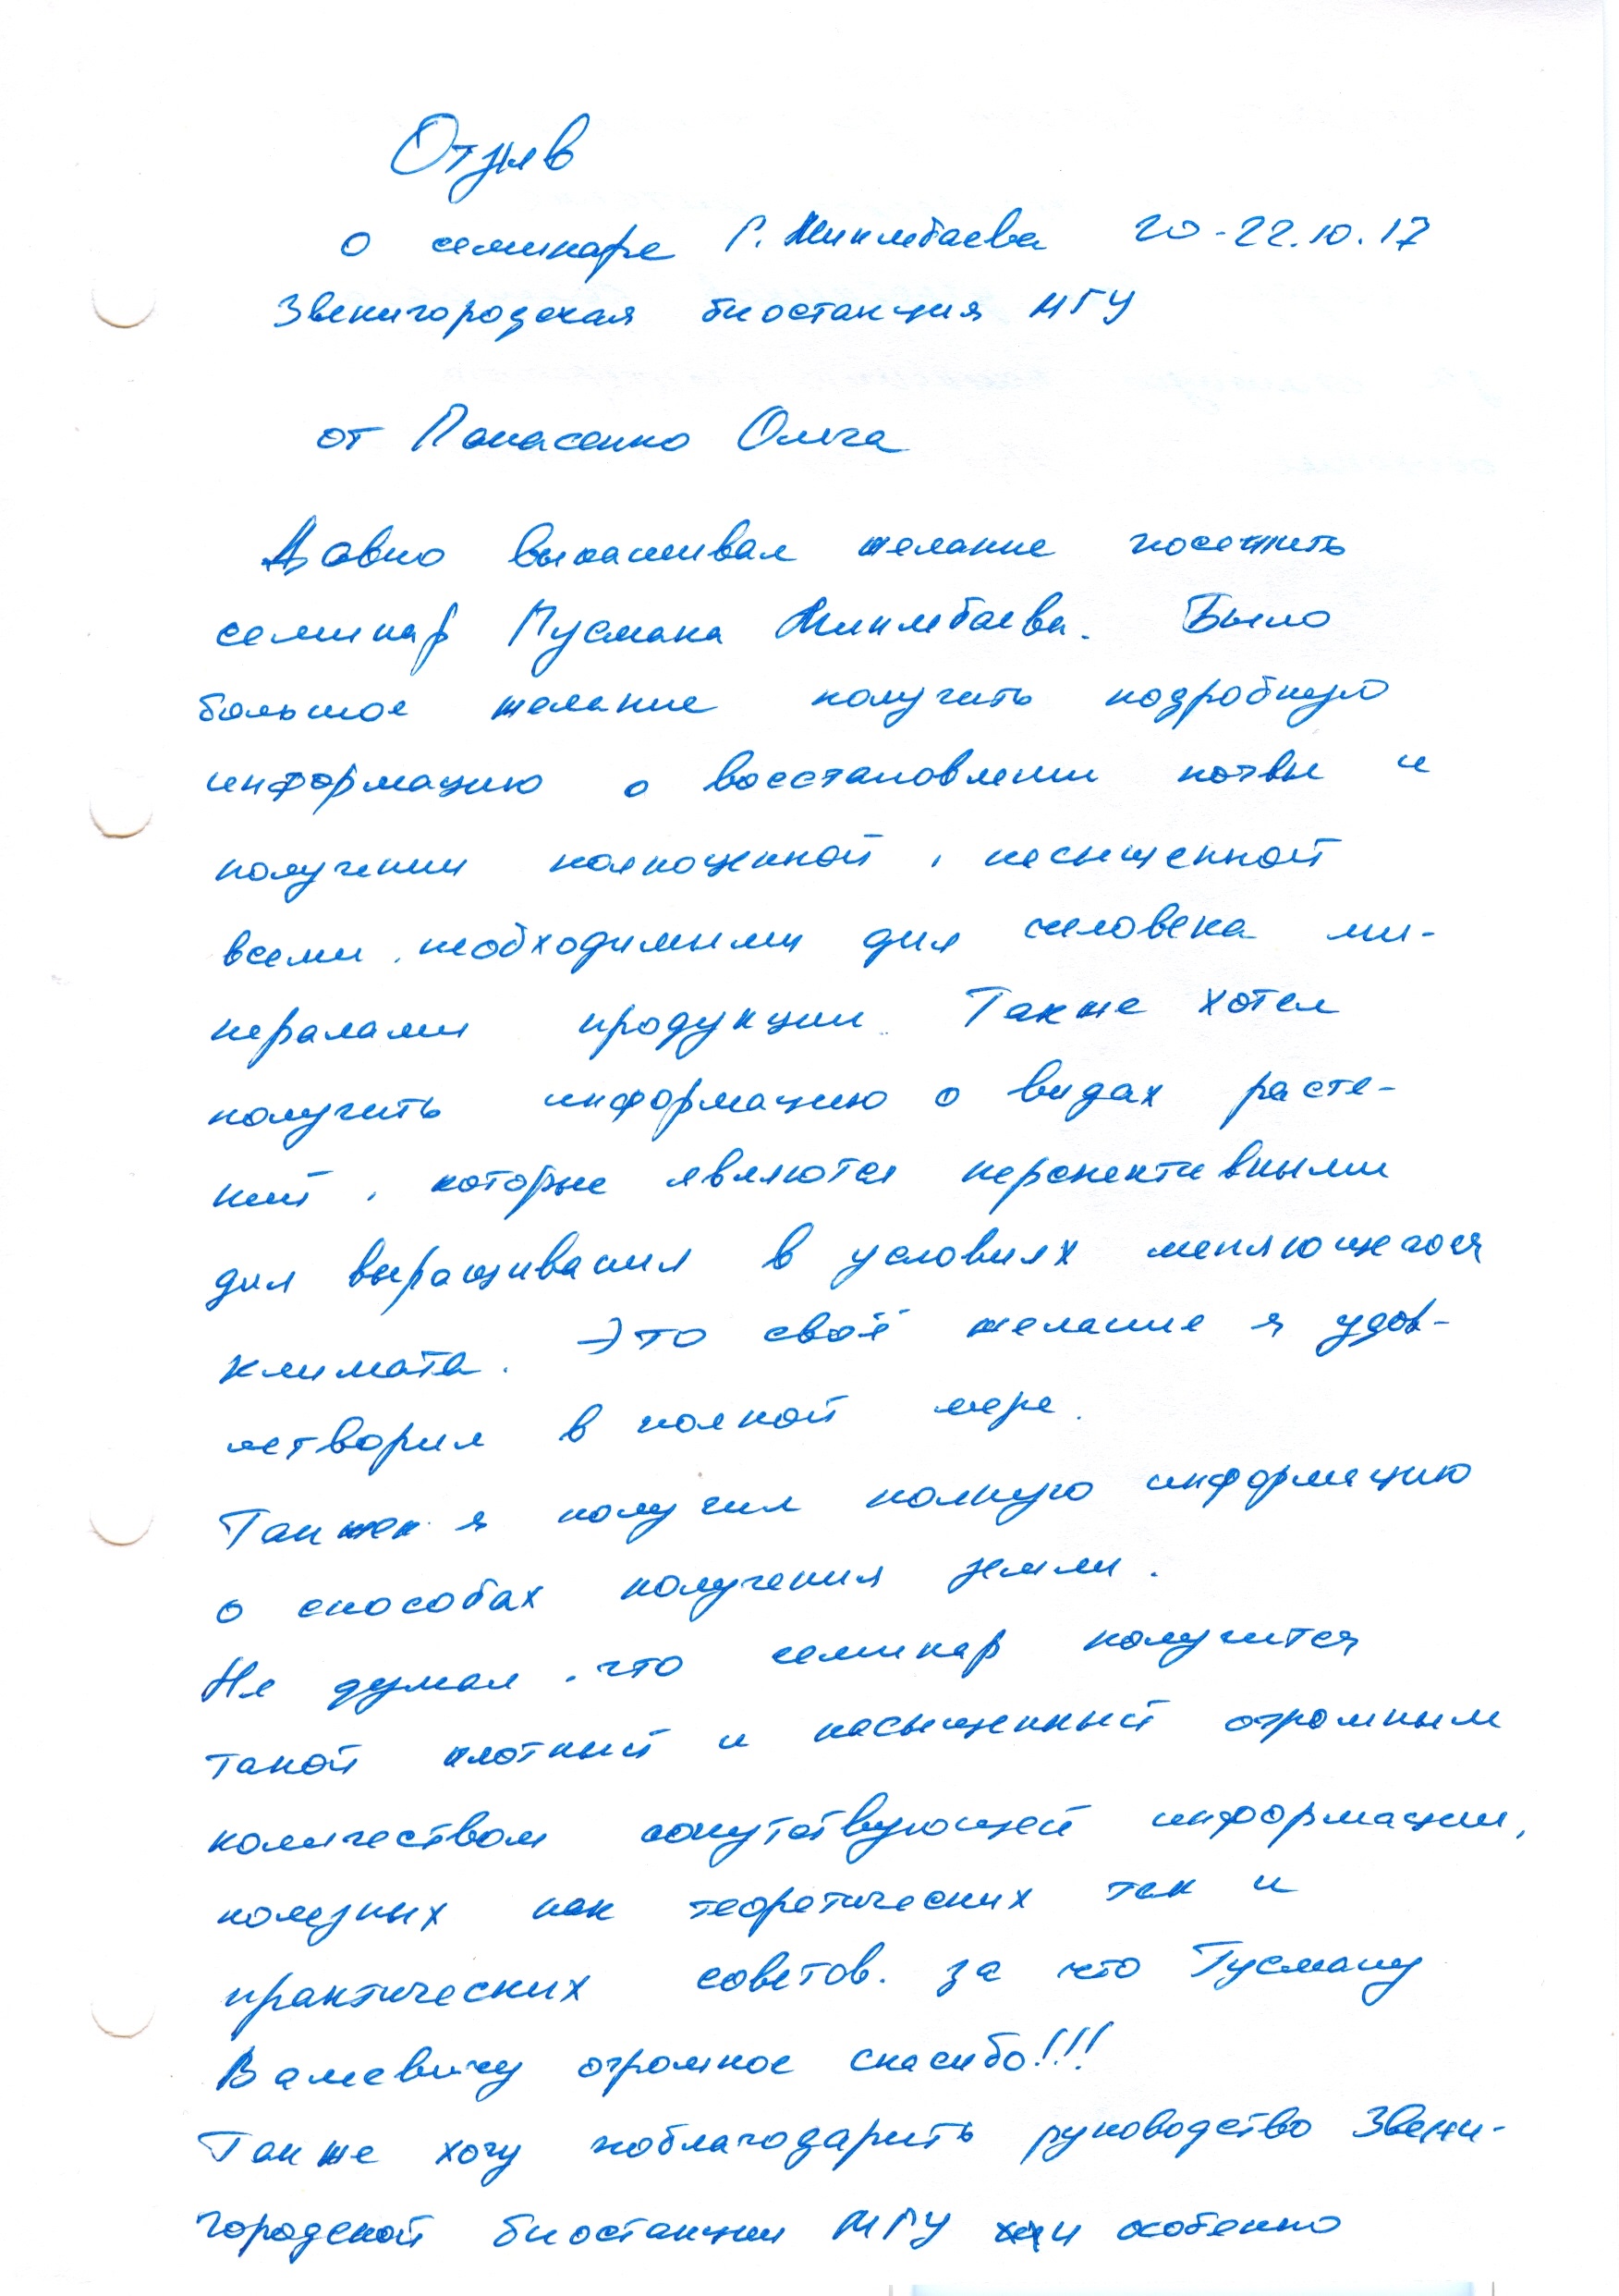 Отзыв
о семинаре Г. Минлебаева 20-22.10.17
Звенигородская биостанция МГУ
от Панасенко Олега
Давно вынашивал желание посетить
семинар Гусмана Минлебаева. Было
большое желание получить подробную
информацию о восстановлении почвы и
получении полноценной, насыщенной
всеми, необходимыми для человека ми-
нералами продукции. Также хотел
получить информацию о видах расте-
ний, которые являются перспективными
для выращивания в условиях меняющегося
климата. Это своё желание я удов-
летворил в полной мере.
Также я получил полную информацию
о способах получения земли.
Не думал, что семинар получится
такой плотный и насыщенный огромным
количеством сопутствующей информации,
полезных как теоретических так и
практических советов. За что Гусману
Валеевичу огромное спасибо!!!
Также хочу поблагодарить руководство Звени-
городской биостанции МГУ и особенно